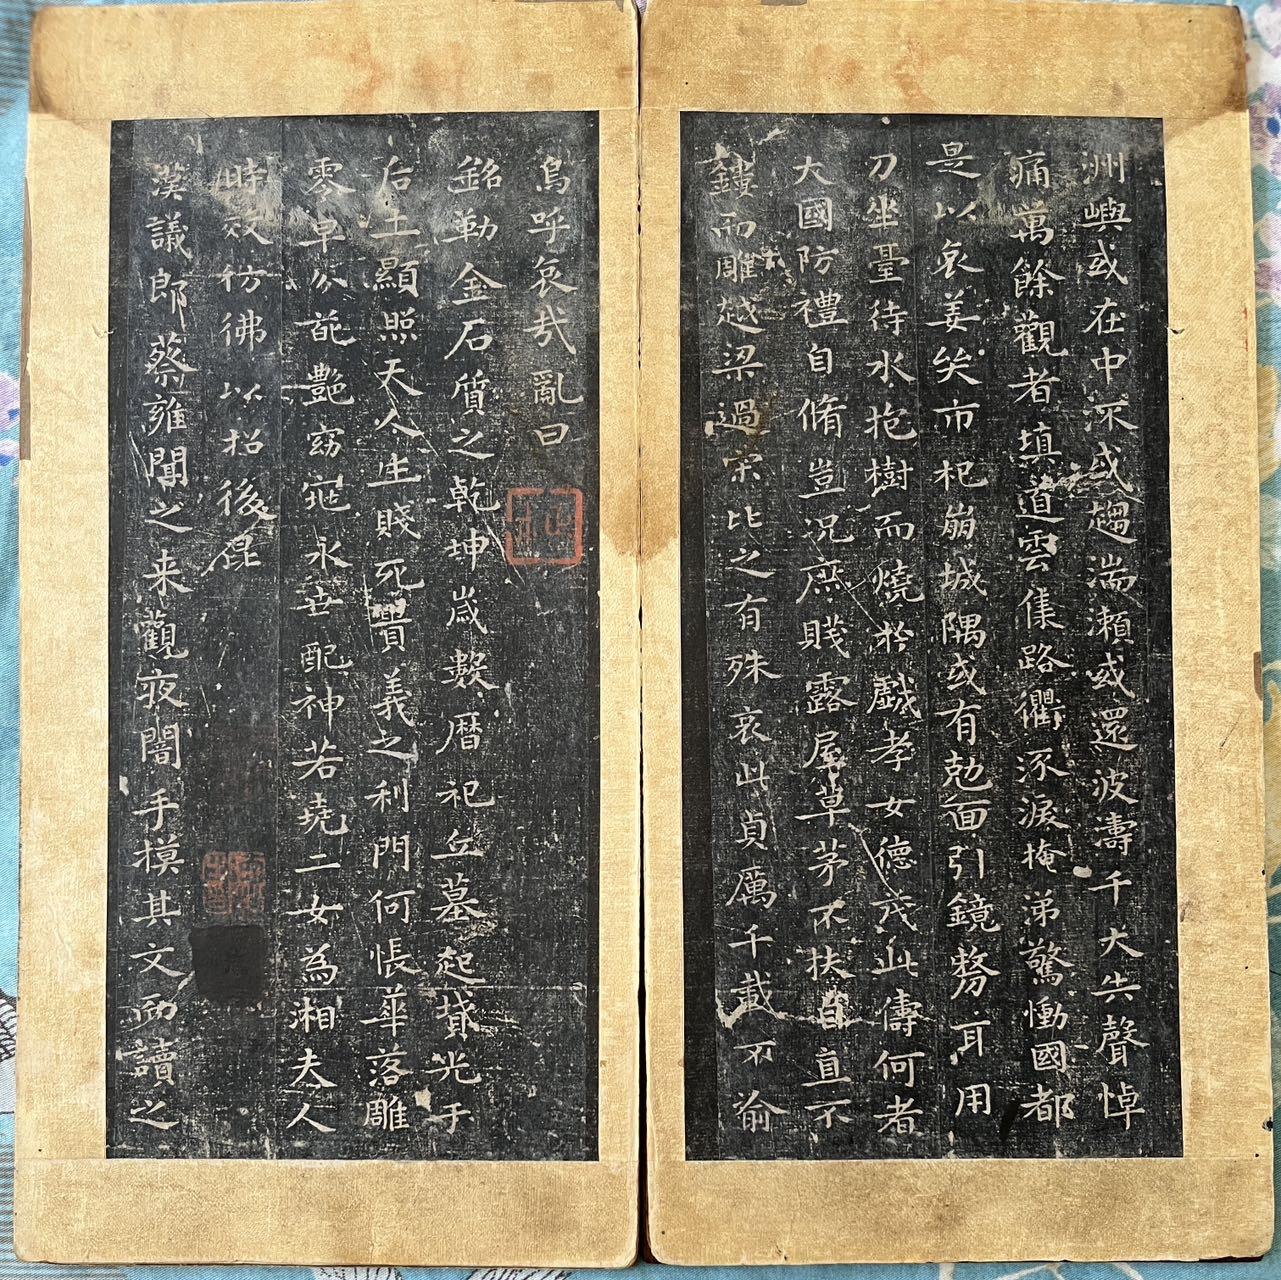 洲嶼或在中流或趨湍瀬或還波濤千夫失聲悼
痛萬餘觀者填道雲集路衢泺淚掩涕驚慟國都
是以哀姜哭市杞崩城隅或有勊面引鏡剺耳用
刀坐臺待水抱樹而燒於戲孝女德茂此儔何者
大國防禮自脩豈況庶賤露屋草茅不扶自直不
鏤而雕越梁過宋比之有殊哀此貞厲千載不渝
烏呼哀哉亂曰
銘勒金石質之乾坤歲數曆祀丘墓起墳光于
后土顯照天人生賤死貴義之利門何悵華落雕
零早分葩艷窈窕永世配神若堯二女為湘夫人
時效彷彿以招後昆
漢議郎蔡雍聞之来觀夜闇手摸其文而讀之